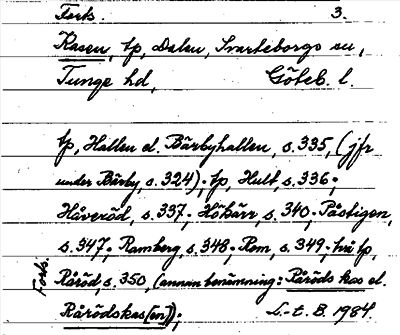 Forts. 3.
Kasen, tp, Dalen, Svarteborgs sn,
Tunge hd, Göteb. l.
tp, Hallen el. Bärbyhallen, s. 335, (jfr
under Bärby, s. 324); tp, Hult, s. 336;
Håveröd, s. 337; Hökärr, s. 340; Påstigen,
s. 347; Ramberg, s. 348; Rom, s. 349; två tp,
Råröd, s. 350, (annan benämning: Råröds kas el.
Rårödskas[en]);
L.-t. B. 1984.
Forts.